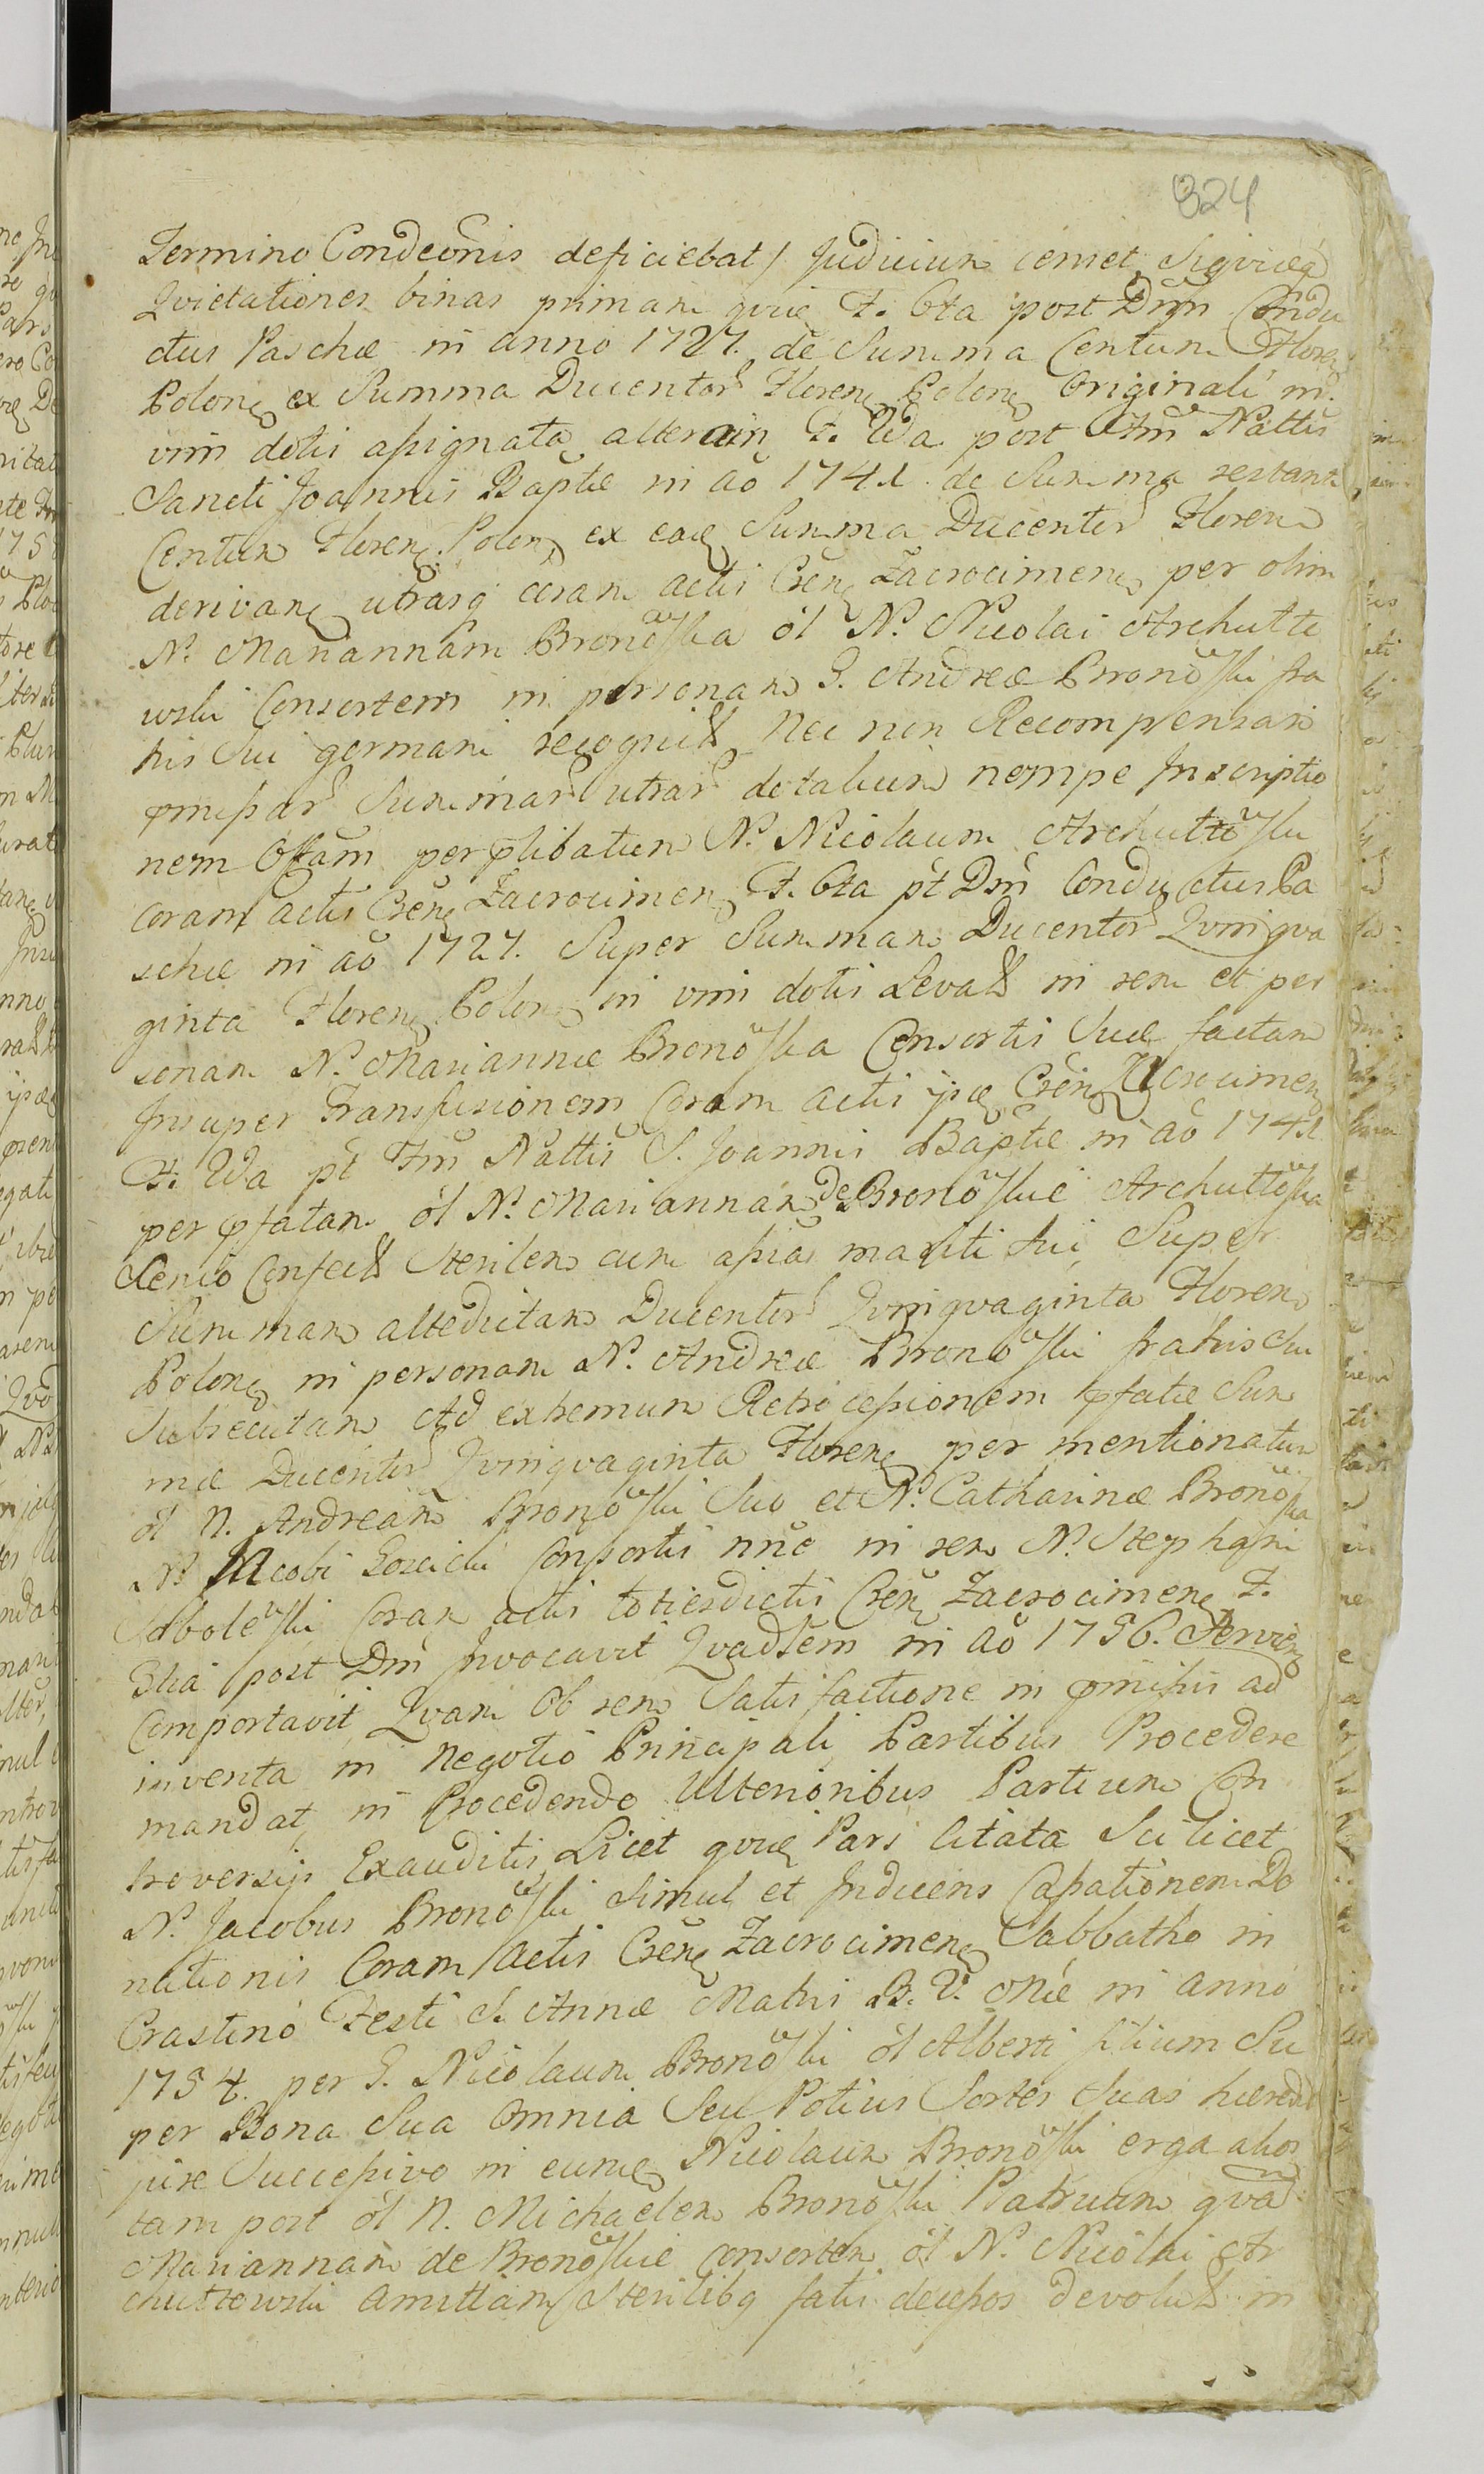 324
Termino Condeõnis deficiebat / Judicium
Qvietationes binas primam qvie F. 6ta post Dnm Condu
ctus Paschæ in anno 1727. de Summa Centum Floren
Polon ex Summa Ducentor Floren Polon Originali in
vim dotis assignata alteram F. 4ta post Nattis
Sancti Joannis Baptæ in ao 1741. de Summa restant
Centum Floren Polon ex eade Summa Ducentor Floren
derivan utrasq coram actis Csen Zacrocimen per olim
N. Mariannam Bronowska ol N. Nicolai Archutte
wski Consortem in personam G. Andreæ Bronowski fra
tris Sui germani recognit Nec non Recompensam
Summar utrar dotalium nempe Inscriptio
nem Offam per plibatum N. Nicolaum Archuttowski
coram actis Csen Zacrocimen F. 6ta pt Dm Conductus Pa
schæ in ao 1727. Super Summam Ducentor Qvinqva
ginta Floren Polon in vim dotis Levat in rem et per
sonam N. Mariannæ Bronowska Consortis Suæ factam
Insuper Transfusionem Coram actis ipse Csen Zacrocimen
F. pt Nattis S. Joannis Baptæ in ao 1741
per pfatam ol N. Mariannam de Bronowskie Archuttowska
Senio Confect Sterilem cum assia mariti sui, Super
Summam altedictam Ducentor Qvinqvaginta Floren
Polon in personam N. Andreæ Bronowski fratris Sui
Subsecutam Ad extremum Retrocessionem pfatæ Sum
mæ Ducentor Qvinqvaginta Floren per mentionatum
ol N. Andream Bronowski Suo et N. Catharinæ Bronowska
N. Jacobi Consortis nne in rem N. Stephani
Sobolewski Coram actis totiesdictis Csen Zacrocimen F.
3tia post Dm Invocavit Qvadsem in ao 1756. Servien
Comportavit, Qvam Ob rem Satisfactione in pmissis ad
inventa in Negotio Principali Partibus Procedere
mandat, in Procedendo Ulterioribus Partium Con
troversijs Exauditis Licet qvie Pars Citata Scilicet
N. Jacobus Bronowski Simul et Inducens Cassationem Do
nationis Coram Actis Csen Zacrocimen Sabbatho in
Crastino Festi S. Annæ Matris B. V. Mæ in anno
1754. per G. Nicolaum Bronowski ol Alberti filium Su
per Bona Sua Omnia Seu Potius Sortes Suas hæredit
jure Successivo in eume Nicolaum Bronowski erga alios
tam post ol N. Michaelem Bronowski Patruum qvam
Mariannam de Bronowskie Consortem ol N. Nicolai Ar
chuttewski Amittam Sterilibq fatis decessos devolut in